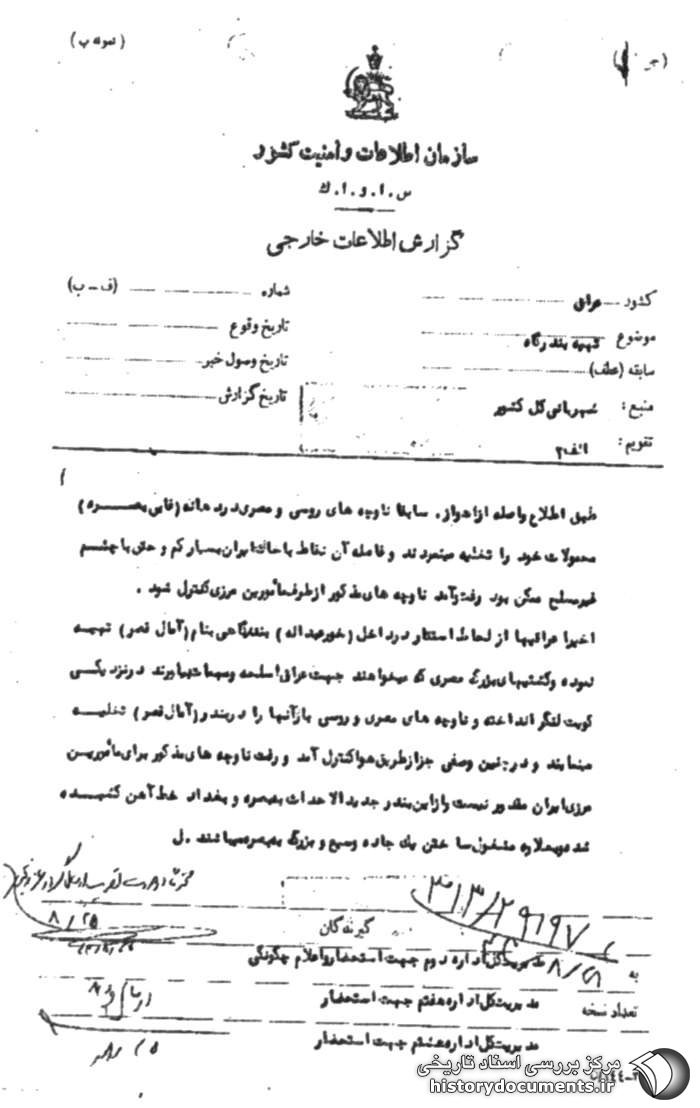 (نمونه ب)
سازمان اطلاعات و امنیت کشور
س . ا . و . ا . ك
گزارش اطلاعات خارجی
کشور عراق
موضوع تهیه بندرگاه
سابقه (عطف)
منبع : شهربانی کل کشور
تقویم : الف ۲
شماره (ف - ب)
تاریخ وقوع
تاریخ وصول خبر
تاریخ گزارش
طبق اطلاع واصله از اهواز . سابقا ناوچه های روسی و مصری در دهانه (فاو بصره)
محمولات خود را تخلیه مینمودند و فاصله آن نقاط با خاك ایران بسیار کم و حتی با چشم
غیر مسلح ممکن بود رفت و آمد ناوچه های مذکور از طرف مأمورین مرزی کنترل شود .
اخیرا عراقیها از لحاظ استتار در داخل (خور عبداله) بندرگاهی بنام (آمال قصر) تهیه
نموده و کشتیهای بزرگ مصری که میخواهند جهت عراق اسلحه و مهمات بیاورند در نزدیکی
کویت لنگر انداخته و ناوچه های مصری و روسی بار آنها را در بندر (آمال قصر) تخلیه
مینمایند و در چنین وضعی جز از طریق هوا کنترل آمد و رفت ناوچه های مذکور برای مأمورین
مرزی ایران مقدور نیست از این بندر جدید الاحداث ببصره و بغداد خط آهن کشیده
شده و بعلاوه مشغول ساختن یك جاده وسیع و بزرگ ببصره میباشند . ل
۸/۲۵
گیرندگان
به مدیریت کل اداره دوم جهت استحضار و اعلام چگونگی
تعداد نسخه مدیریت کل اداره هفتم جهت استحضار
مدیریت کل اداره هشتم جهت استحضار
مرکز بررسی اسناد تاریخی
historydocuments.ir